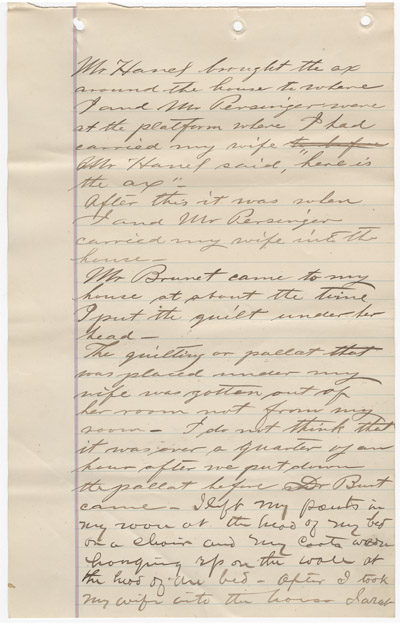 Mr Hanes brought the ax
around the house to where
I and Mr Persinger were
at the platform where I had
carried my wife
Mr Hanes said, "here is
the ax"-
After this it was when
I and Mr Persinger
carried my wife into the
house-
Mr Brunet came to my
house at about the time
I put the quilt under her
head-
The quilting or pallat that
was placed under my
wife was gotten out of
her room not from my
room - I do not think that
it was over a quarter of an
hour after we put down
the pallat before Dr Burt
came - I left my pants in
my room at the head of my bed
on a chair and my coats were
hanging up on the wale at
the head of the bed - After I took
my wife into the house I